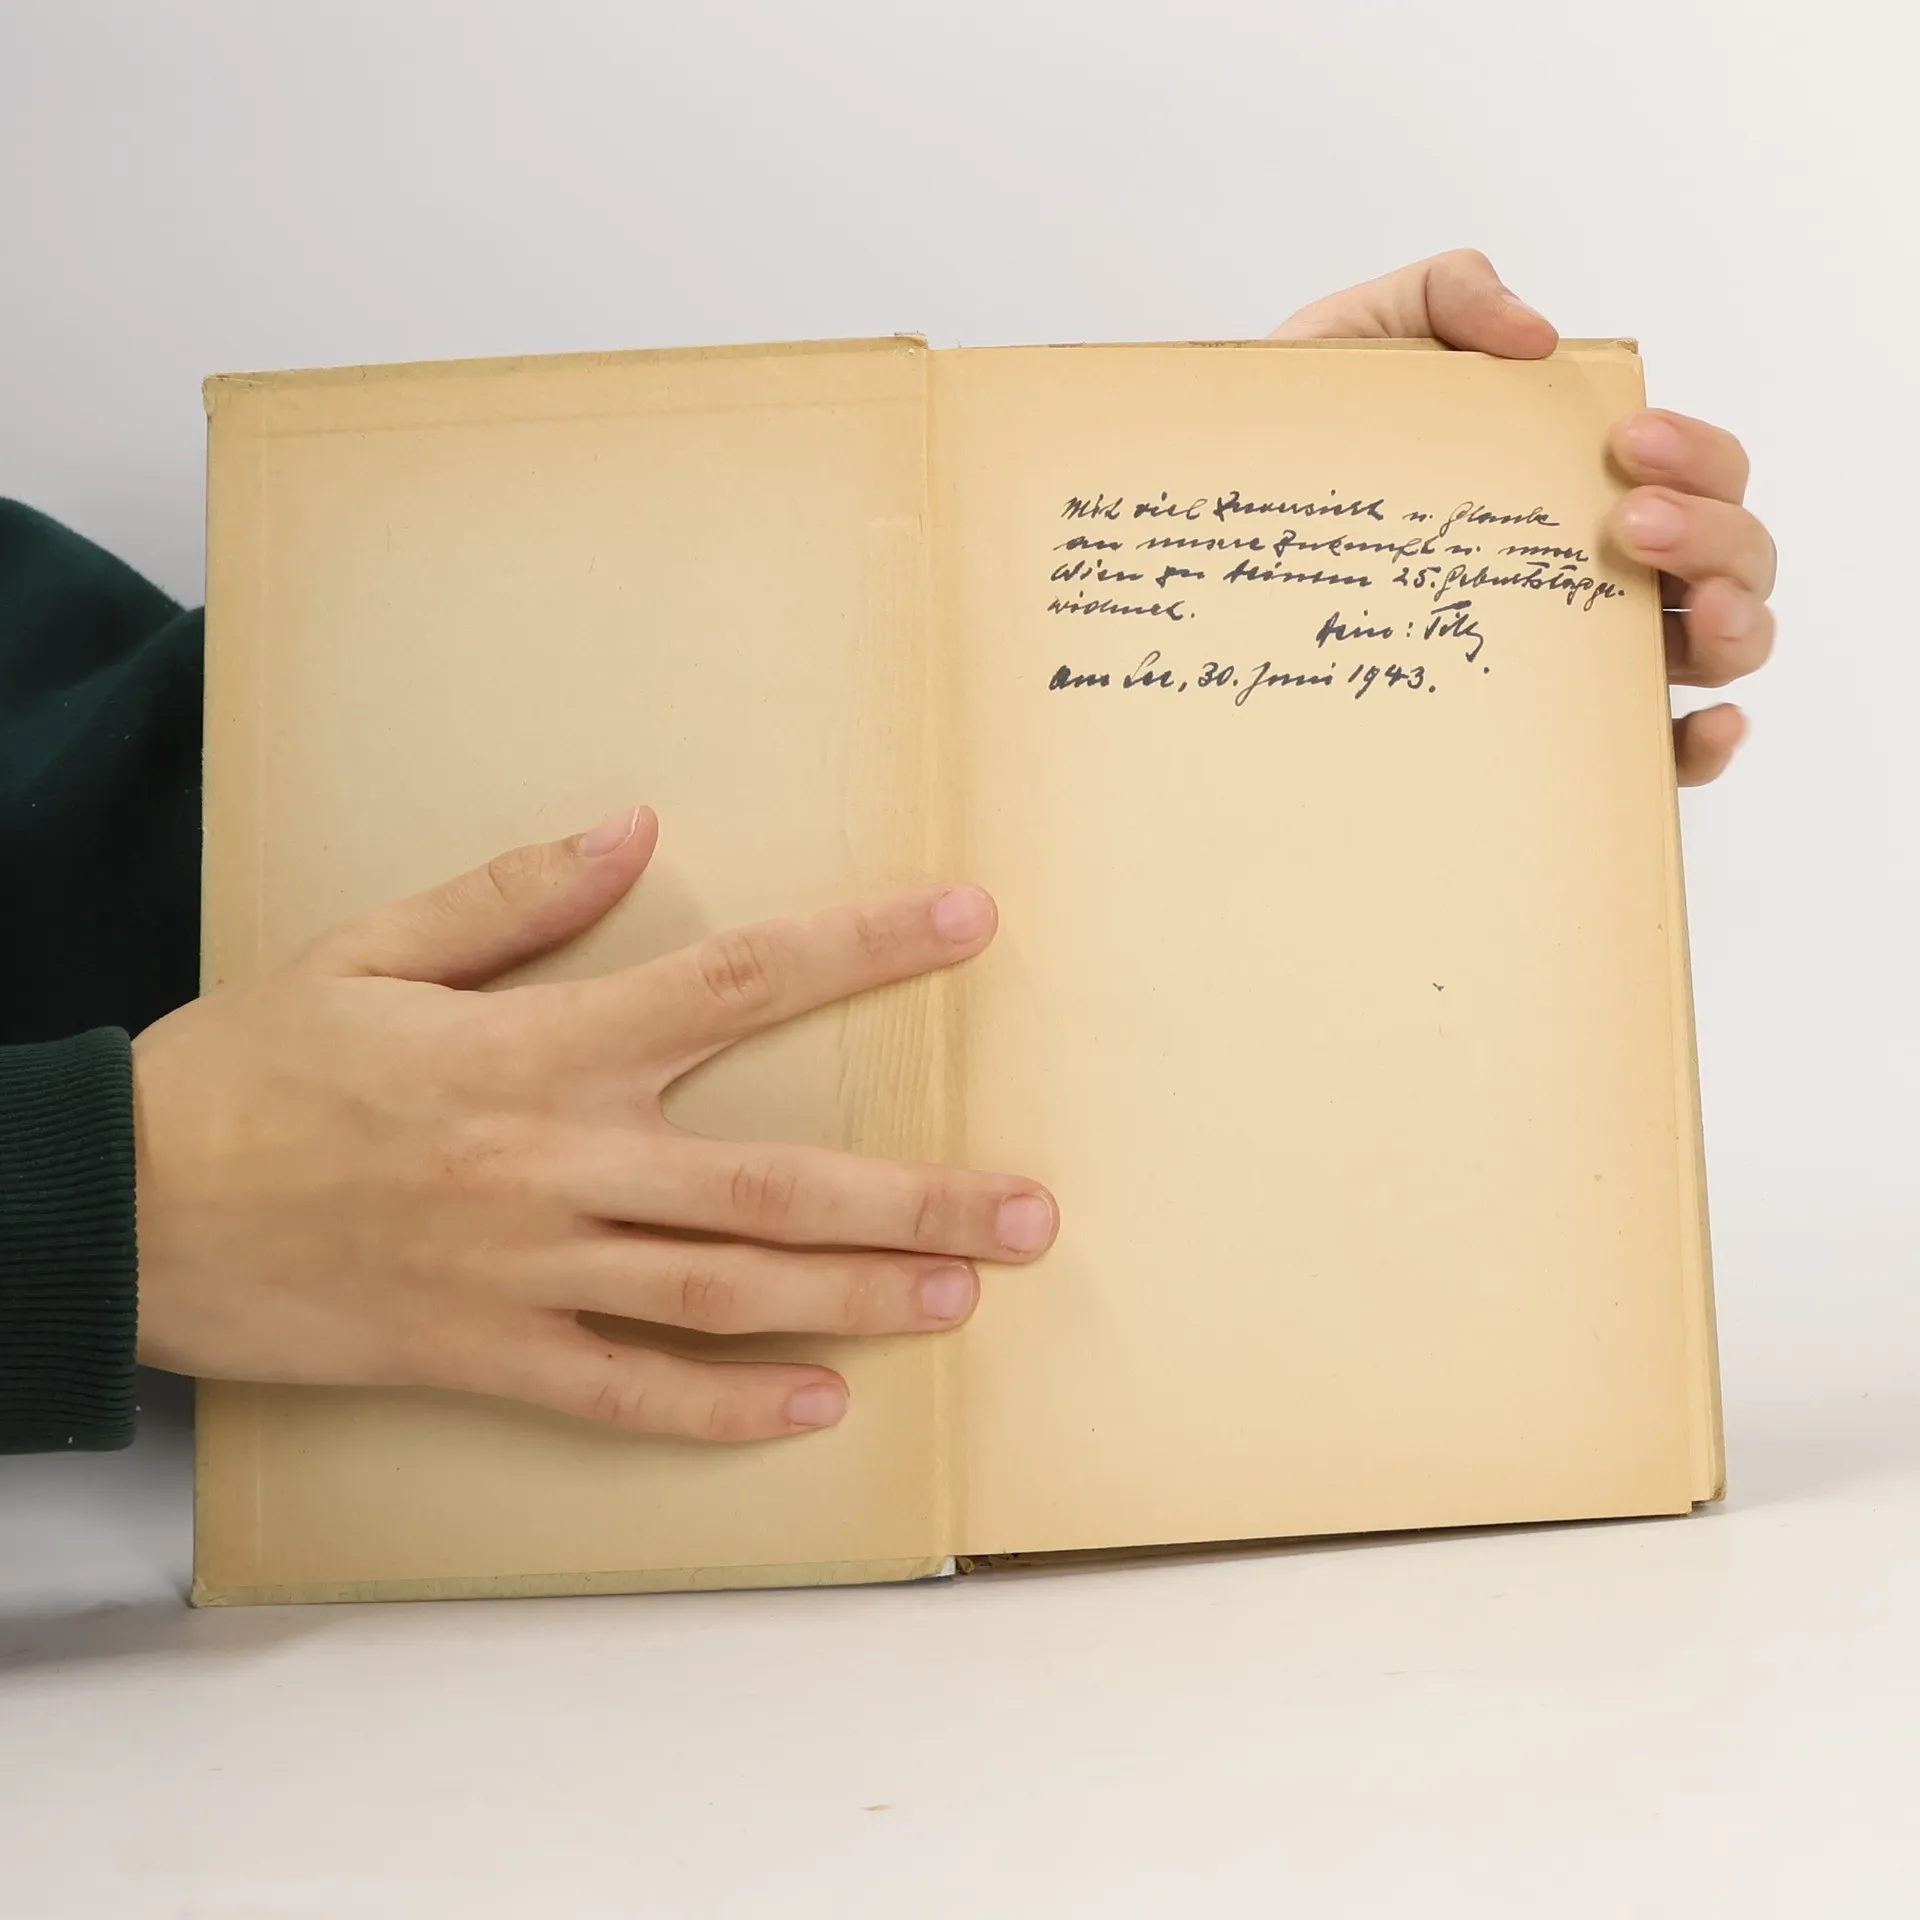 Mit viel Zuversicht u. Glaube
an unsere Zukunft u. unser
Wien zu deinem 25. Geburtstag ge-
widmet.
dein:
am See, 30. Juni 1943.